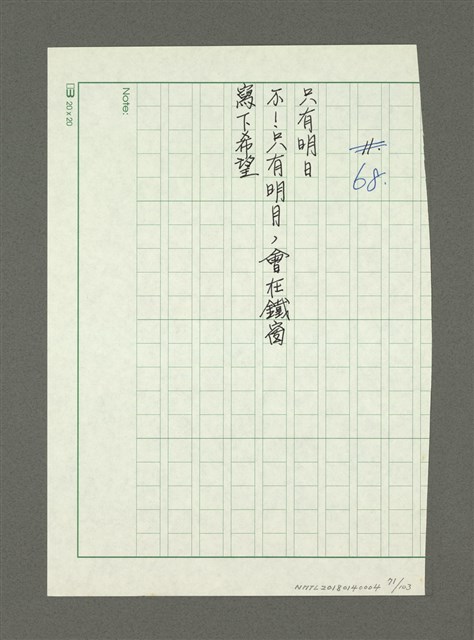 11.
68.
只有明日
不！只有明月，會在鐵窗
寫下希望
Note:
20 x 20
NMTL20180140004 71/103